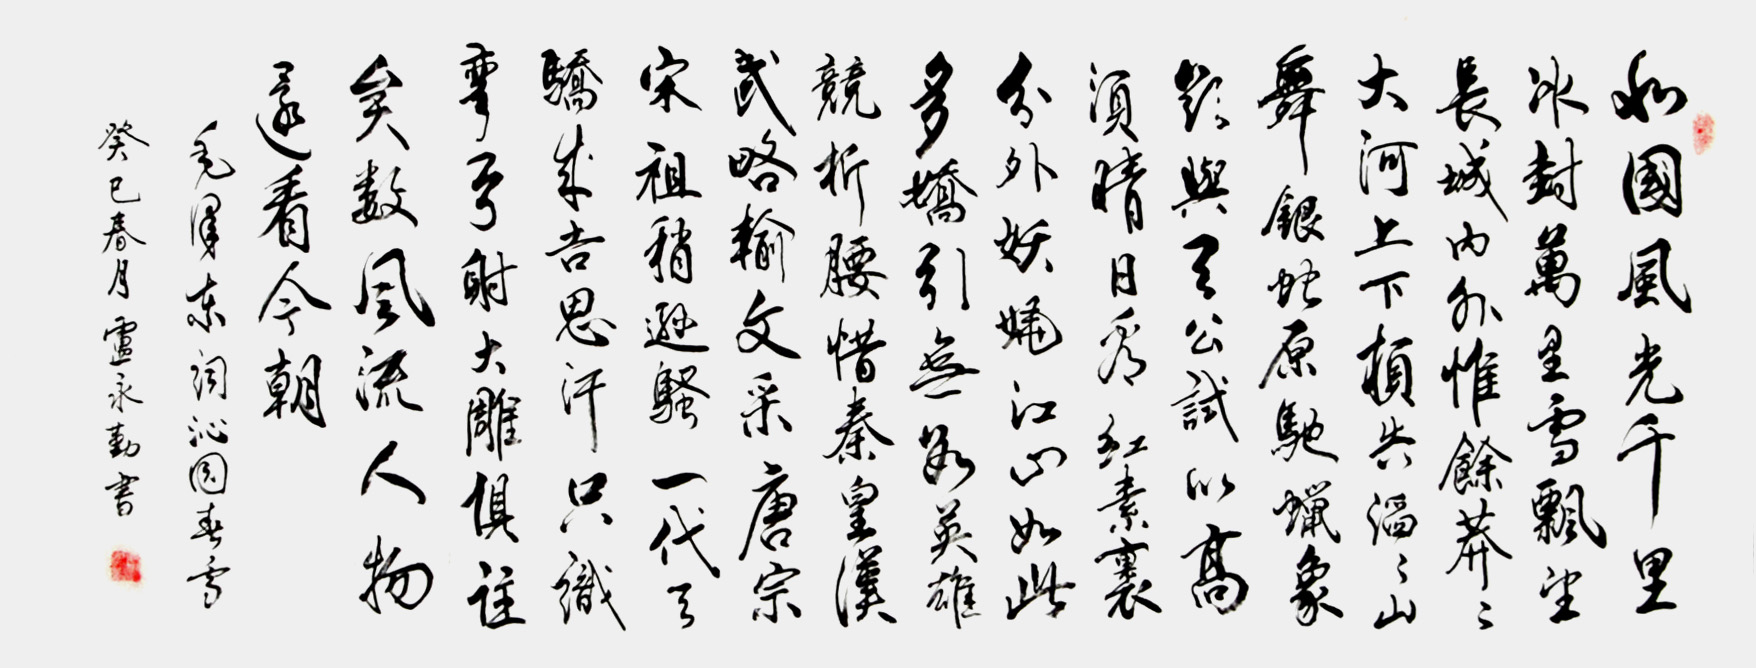 北國風光千里
冰封萬里雪飄望
長城内外惟餘莽〻
大河上下頓失滔〻山
舞銀蛇原馳蠟象
欲與天公試比高
須晴日看紅素裹
分外妖嬈江山如此
多嬌引無數英雄
競折腰惜秦皇漢
武略輸文采唐宗
宋祖稍遜騷一代天
驕成吉思汗只識
彎弓射大雕俱往
矣数風流人物
還看今朝
毛澤東詞沁園春雪
癸巳春月盧永勤書